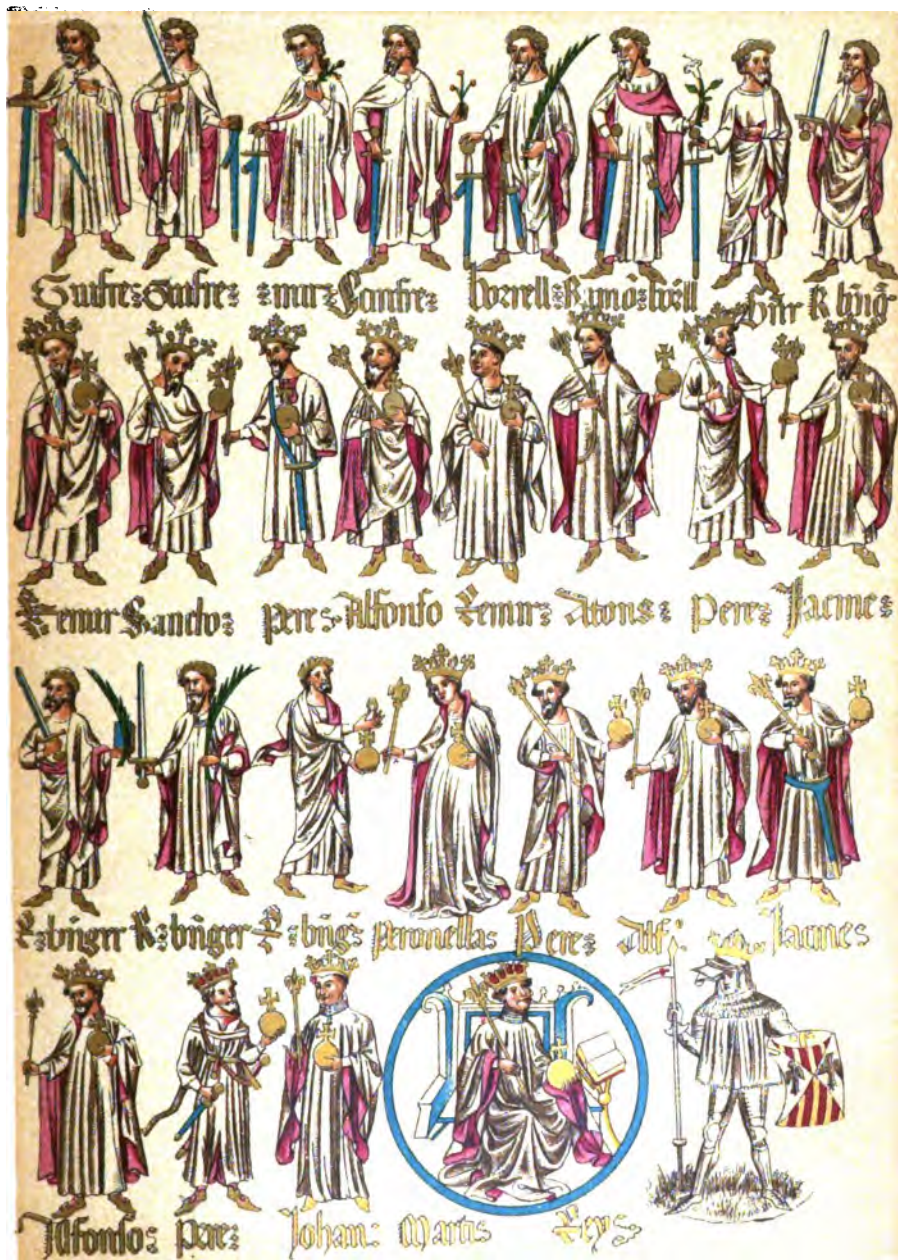 Guifre: Guifre: : mir: Lenfre: borrell: R ymō: borll
Remir Sancho: pere: Alfonso Remir: Afons: pere: Jacme:
R: bn̄ger R: bn̄ger R: bn̄g: peronella: pere: Alf: Jacme:
Alfonso: pere: Johan: Marti: Rey: